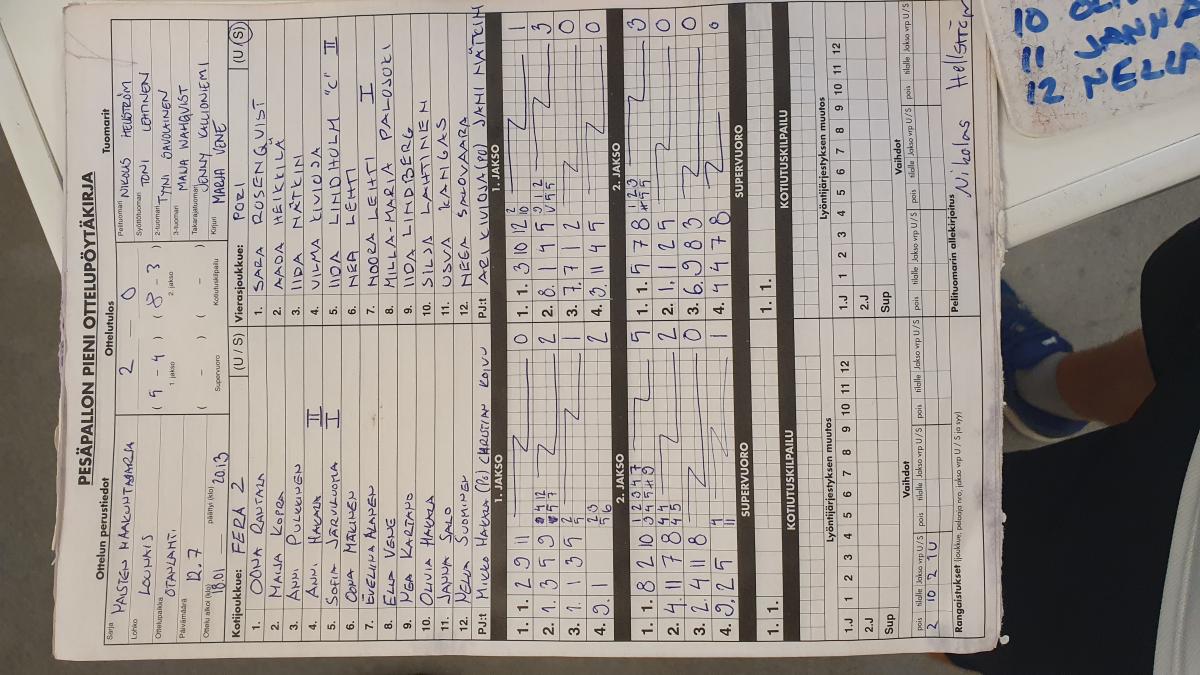 PESÄPALLON PIENI OTTELUPÖYTÄKIRJA
Ottelun perustiedot
Ottelutulos
Tuomarit
Sarja NAISTEN MAAKUNTASARJA
Lohko LOUNAIS
Ottelupaikka OTANLAHTI
Päivämäärä 12.7
Ottelu alkoi (klo) 18.01 päättyi (klo) 20.13
2 - 0
( 5 - 4 ) ( 8 - 3 )
1. jakso 2. jakso
( - ) ( - )
Supervuoro Kotiutuskilpailu
Pelituomari NIKOLAS HELLSTRÖM
Syöttötuomari TONI LEHTINEN
2-tuomari TYNI SAVOLAINEN
3-tuomari MAIJA WAHLQVIST
Takarajatuomari JENNY KALLIONIEMI
Kirjuri MARJA VENE
Kotijoukkue: FERA 2 (U / S)
1. OONA RANTALA
2. MAIJA KOPRA
3. ANNI PULKKINEN
4. ANNI HAKALA II
5. SOFIA JÄRVILUOMA I
6. OONA MÄKINEN
7. EVELIINA ALANEN
8. ELLA VENE
9. NEA KARTANO
10. OLIVIA HAKALA
11. JANNA SALO
12. NELLA SUOMINEN
PJ:t MIKKO HAKALA (PJ) CHRISTIAN KOIVU
Vierasjoukkue: PORI (U / S)
1. SARA ROSENQVIST
2. AADA HEIKKILÄ
3. IIDA NÄTKIN
4. VILMA KIVIOJA
5. IIDA LINDHOLM "C" II
6. NEA LEHTI
7. NOORA LEHTI I
8. MILLA-MARIA PALOJOKI
9. IIDA LINDBERG
10. SILJA LAHTINEN
11. USVA KANGAS
12. NEGA SALOVAARA
PJ:t ARI KIVIOJA (PJ) JANI NÄTKIN
1. JAKSO
1. 1. 2 9 11 0
2. 1. 3 5 9 2
3. 1. 1 3 5 1
4. 9. 1 2
1. JAKSO
1. 1. 3 10 12 1
2. 8. 1 4 5 3
3. 7. 7 1 2 0
4. 9. 11 4 5 0
2. JAKSO
1. 1. 8 2 10 5
2. 4. 11 7 8 2
3. 2. 4 11 8 0
4. 9. 2 5 1
2. JAKSO
1. 1. 5 7 8 3
2. 1. 1 2 5 0
3. 6. 9 8 3 0
4. 4 4 7 8 0
SUPERVUORO
1. 1.
SUPERVUORO
1. 1.
KOTIUTUSKILPAILU
KOTIUTUSKILPAILU
Lyöntijärjestyksen muutos
1.J 1 2 3 4 5 6 7 8 9 10 11 12
2.J
Sup
Lyöntijärjestyksen muutos
1.J 1 2 3 4 5 6 7 8 9 10 11 12
2.J
Sup
Vaihdot
pois tilalle Jakso vrp U / S pois tilalle Jakso vrp U / S pois tilalle Jakso vrp U / S
2 10 2 1U
Vaihdot
pois tilalle Jakso vrp U / S pois tilalle Jakso vrp U / S pois tilalle Jakso vrp U / S
Rangaistukset (joukkue, pelaaja nro, jakso vrp U / S ja syy)
Pelituomarin allekirjoitus
Nikolas Hellström
10
11 JANNA
12 NELLA